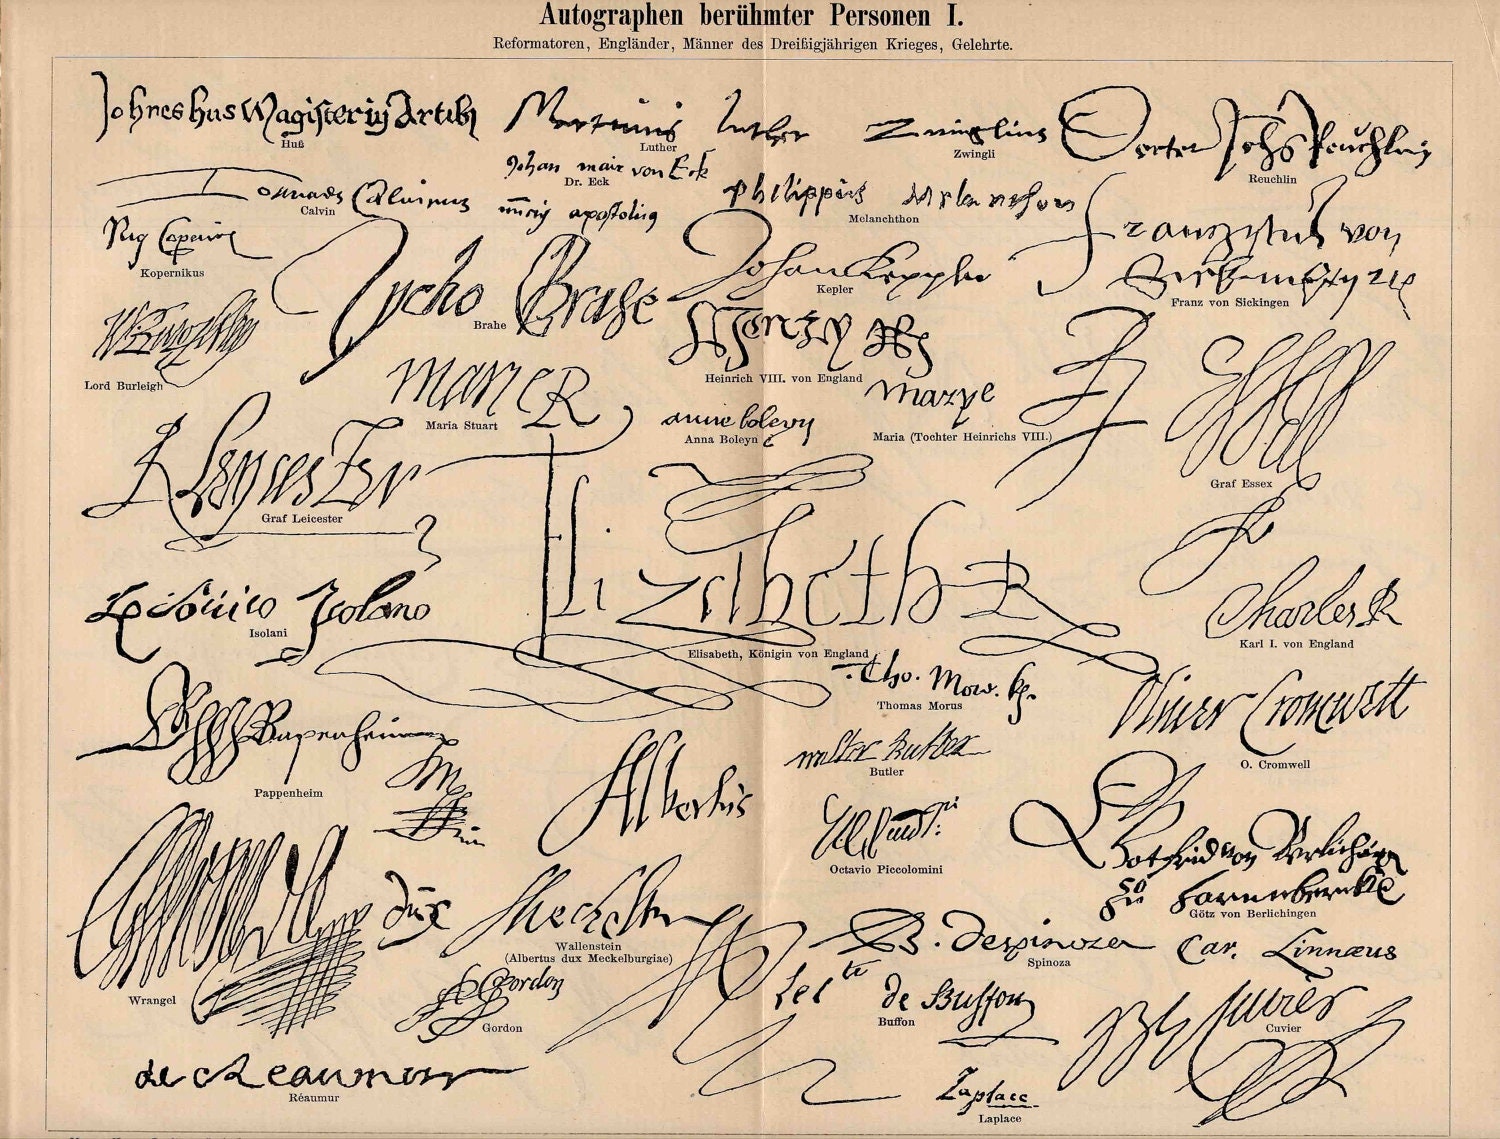 Autographen berühmter Personen I.
Reformatoren, Engländer, Männer des Dreißigjährigen Krieges, Gelehrte.
Johnes hus Magister in Artib
Huß
Martinus Luther
Luther
Zwinglius
Zwingli
Johs Reuchlin
Reuchlin
Johan mair von Eck
Dr. Eck
Calvinus
Calvin
Philippus Melancthon
Melanchthon
Kopernikus
Tycho Brahe
Brahe
Johan Keppler
Kepler
von
Franz von Sickingen
Lord Burleigh
Heinrich VIII. von England
Marie R
Maria Stuart
anne boleyn
Anna Boleyn
Marye
Maria (Tochter Heinrichs VIII.)
Essex
Graf Essex
R Leycester
Graf Leicester
Elizabeth R
Elisabeth, Königin von England
Charles R
Karl I. von England
Isolano
Isolani
Tho. More. kg.
Thomas Morus
Oliver Cromwell
O. Cromwell
Pappenheim
Pappenheim
Walter Butler
Butler
Albertus
dux Meckelbur
Wallenstein
(Albertus dux Meckelburgiae)
Octavio Piccolomini
Gotfrid von Berlichingen
zu Hornnbergkh
Götz von Berlichingen
Wrangel
B. despinoza
Spinoza
Car. Linnæus
Gordon
Gordon
de Buffon
Buffon
Cuvier
Cuvier
de Reaumur
Réaumur
Laplace
Laplace